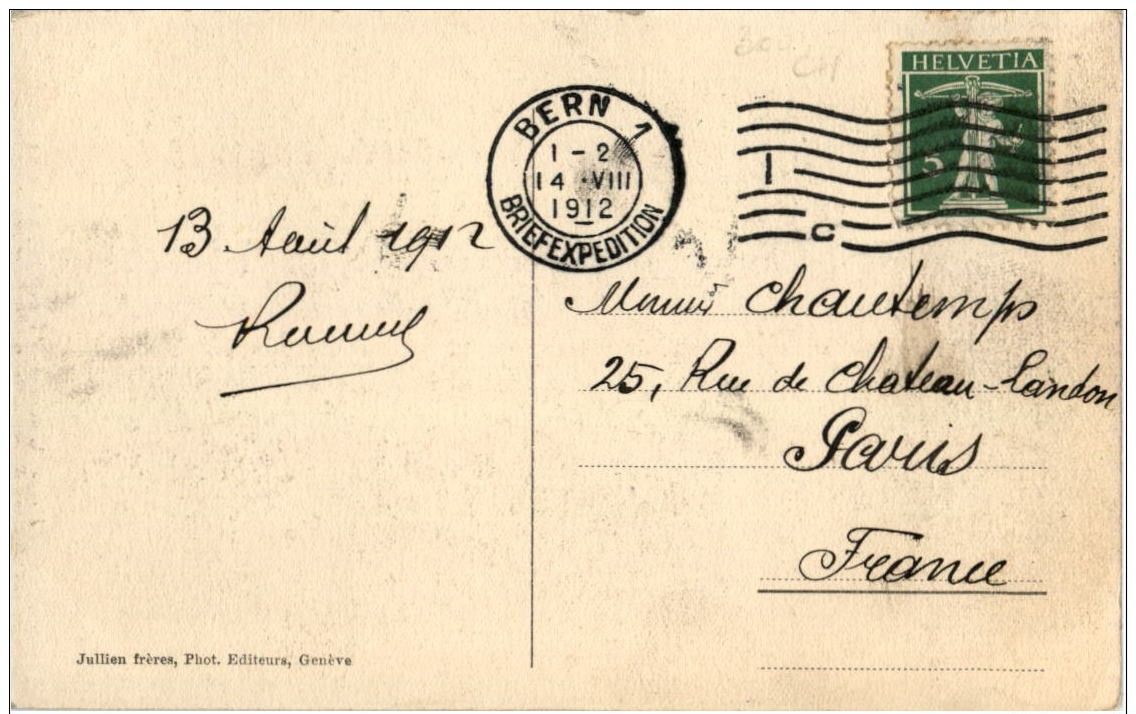 300
CH
HELVETIA
5
BERN 1
1-2
14·VIII
1912
BRIEFEXPEDITION
13 Août 1912
Monsieur Chautemps
25, Rue de Chateau-Landon
Paris
France
Jullien frères, Phot. Editeurs, Genève